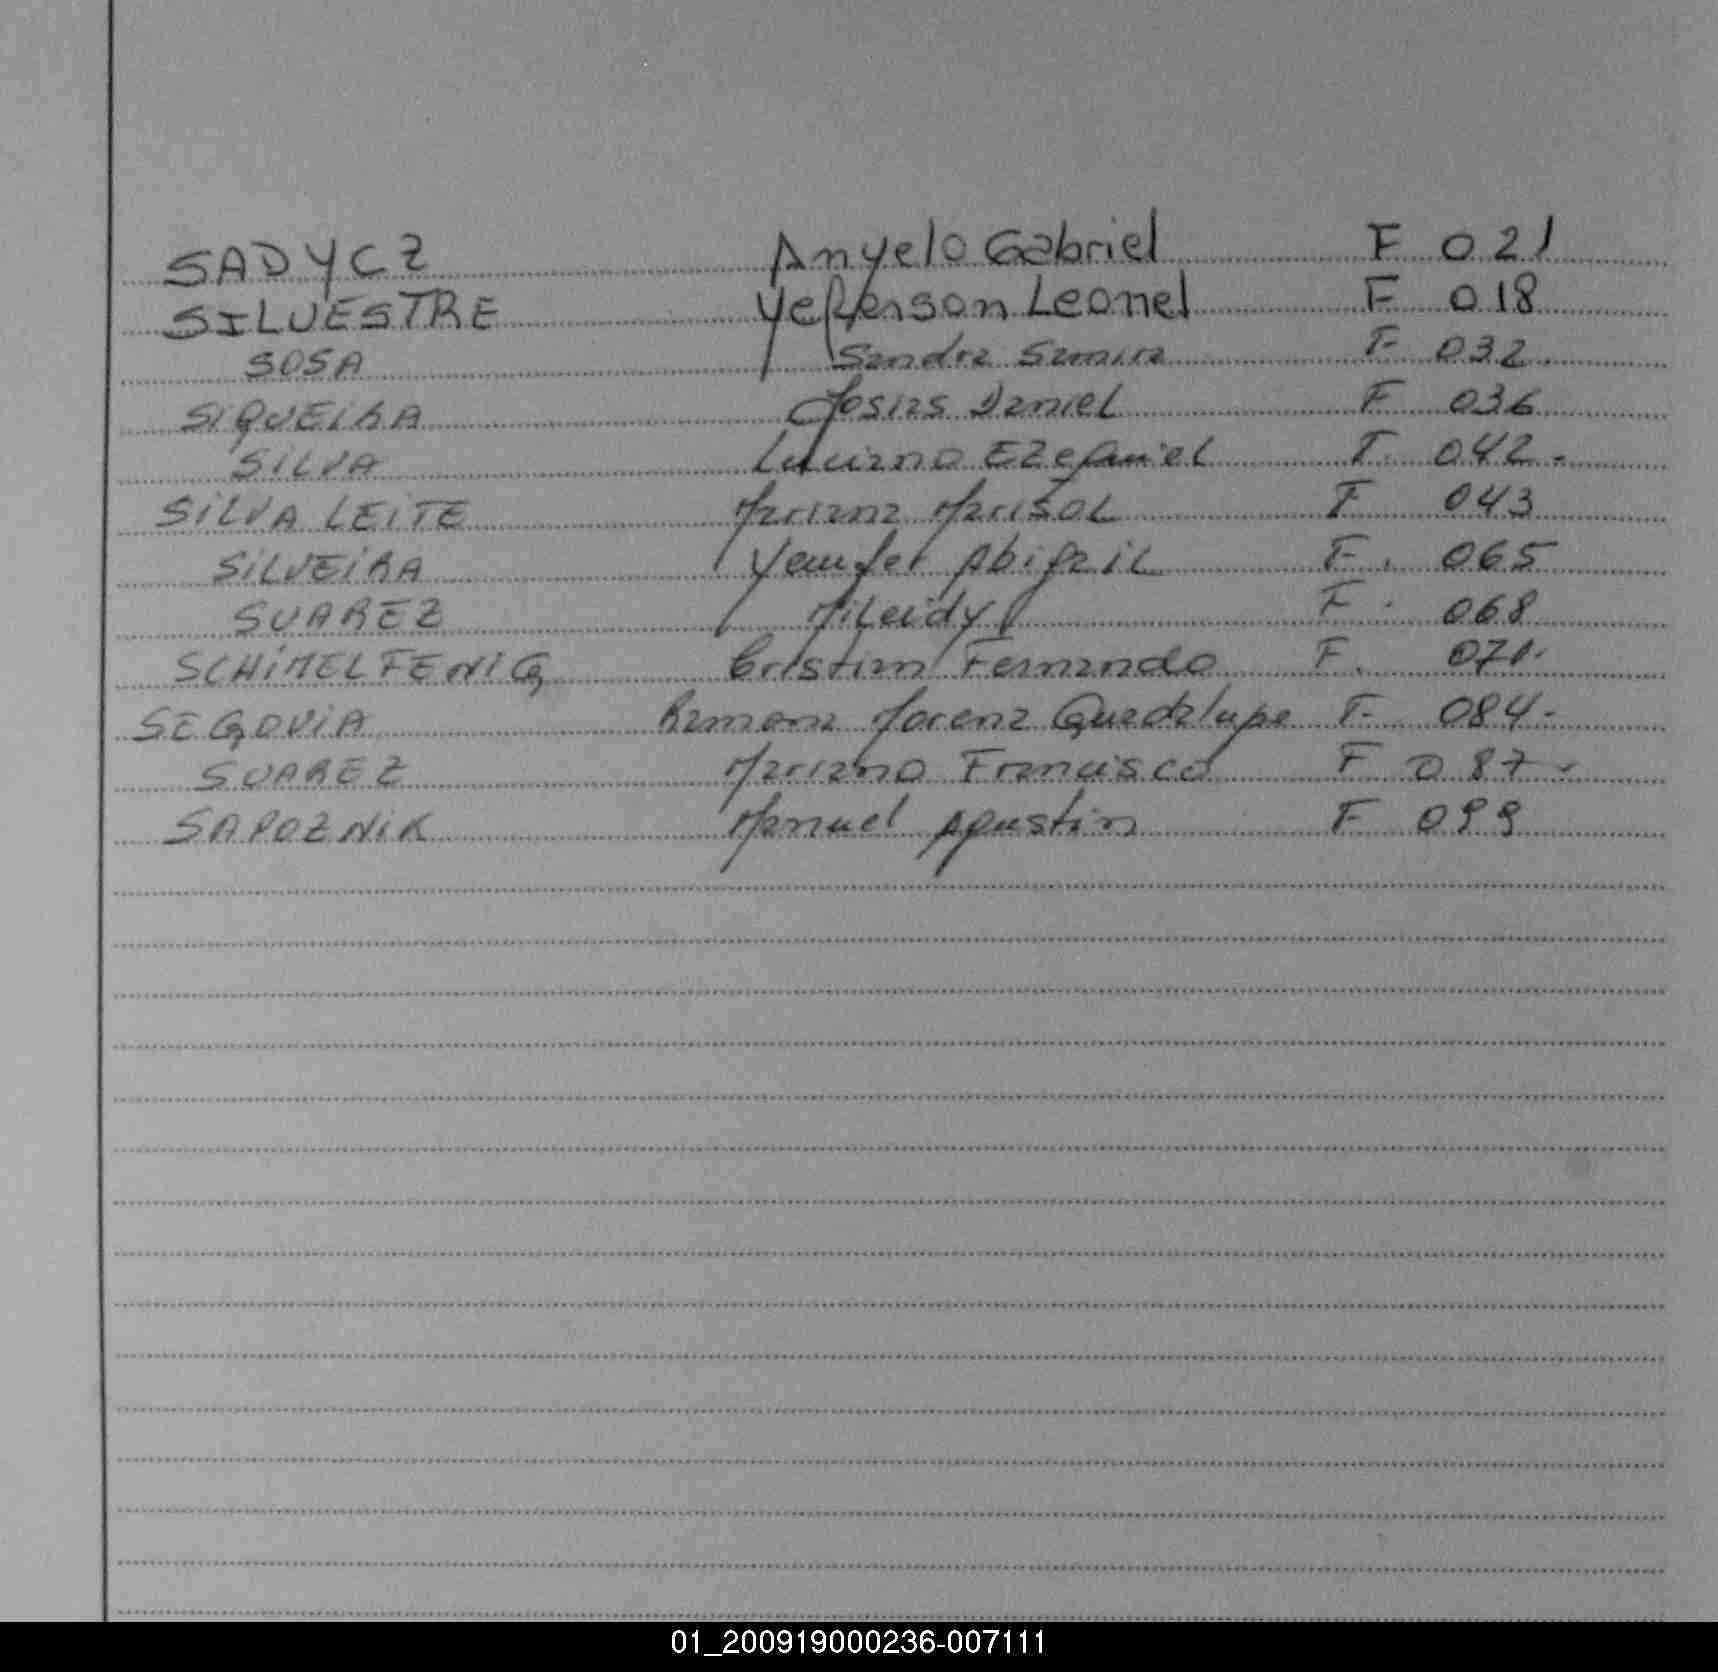 SADYCZ Anyelo Gabriel F 021
SILVESTRE Yefferson Leonel F 018
SOSA Sandra Samira F 032
SIQUEIRA Josias Daniel F 036
SILVA Luciano Ezequiel F. 042.
SILVA LEITE Mariana Marisol F 043
SILVEIRA Yenifer Abigail F. 065
SUAREZ Mileidy F. 068
SCHIMELFENIG Cristian Fernando F. 071.
SEGOVIA Ramona Morena Guadalupe F. 084.
SUAREZ Mariano Francisco F 087.
SAPOZNIK Manuel Agustin F 099
01_200919000236-007111